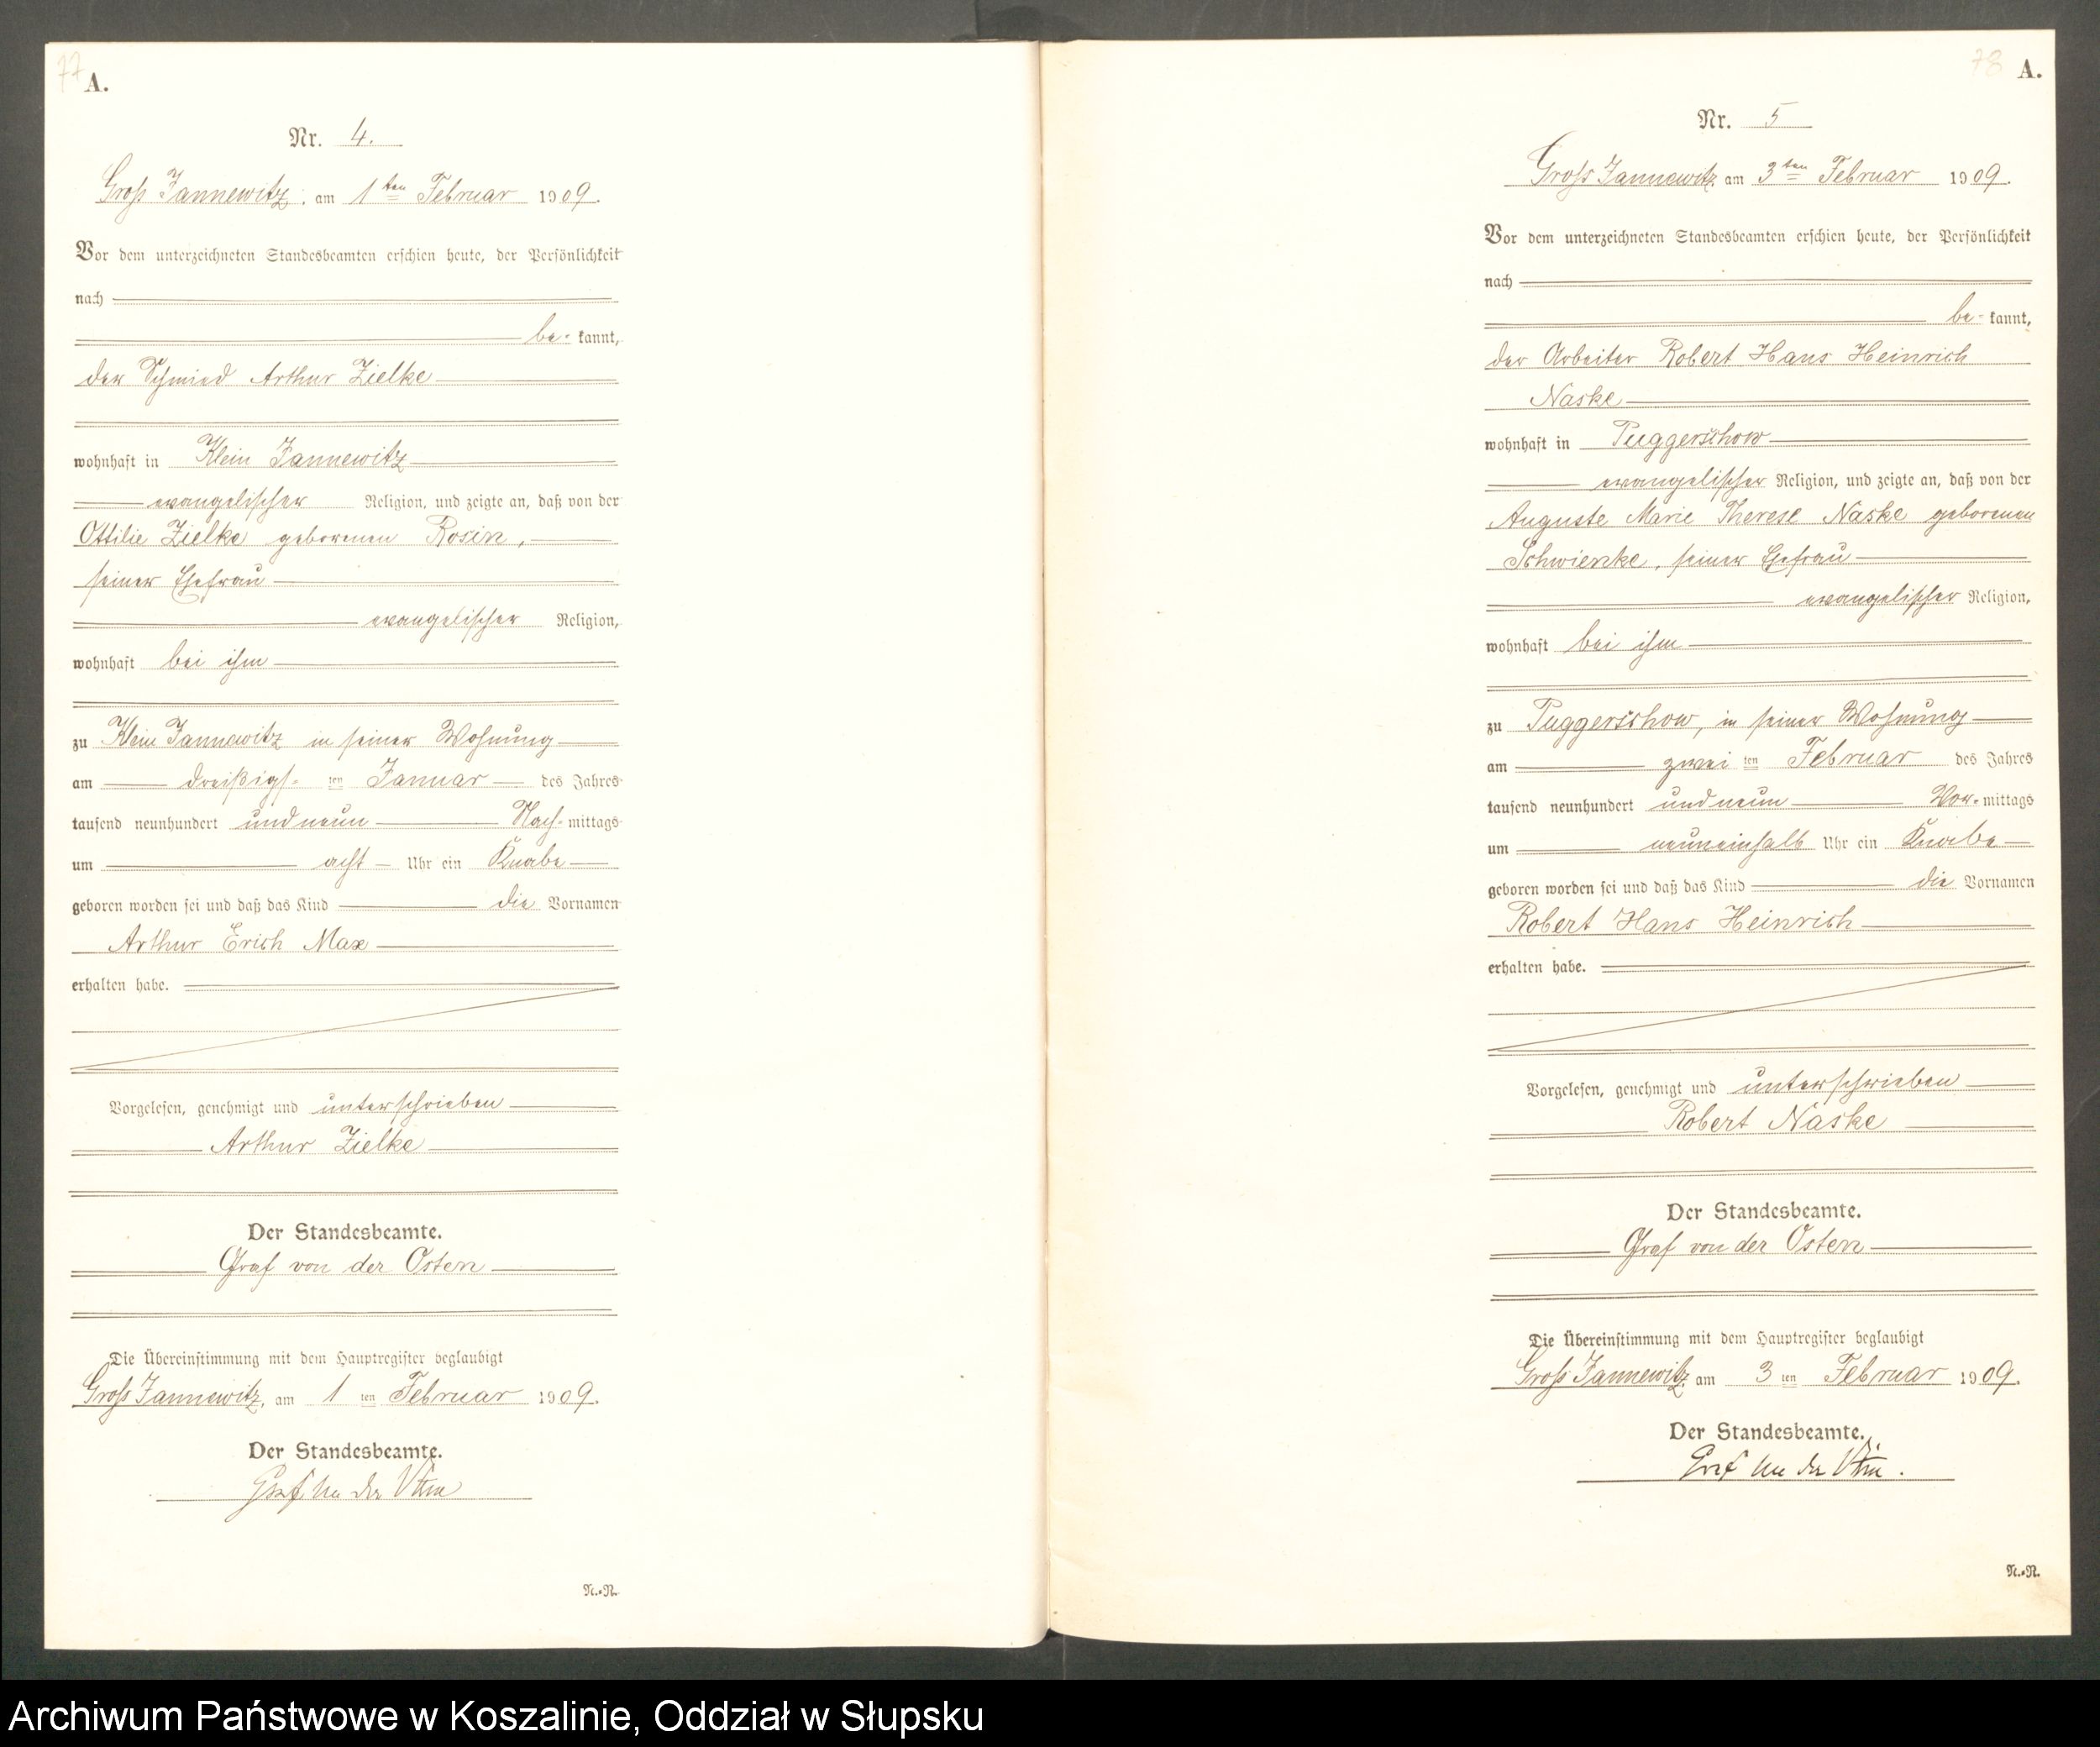 77
A.
Nr. 4.
Groß Jannewitz, am 1ten Februar 1909.
Vor dem unterzeichneten Standesbeamten erschien heute, der Persönlichkeit
nach
be- kannt,
der Schmied Arthur Zielke
wohnhaft in Klein Jannewitz
evangelischer Religion, und zeigte an, daß von der
Ottilie Zielke geborenen Rosin,
seiner Ehefrau
evangelischer Religion,
wohnhaft bei ihm
zu Klein Jannewitz in seiner Wohnung
am dreißigs- ten Januar des Jahres
tausend neunhundert und neun Nach- mittags
um acht Uhr ein Knabe
geboren worden sei und daß das Kind die Vornamen
Arthur Erich Max
erhalten habe.
Vorgelesen, genehmigt und unterschrieben
Arthur Zielke
Der Standesbeamte.
Graf von der Osten
Die Übereinstimmung mit dem Hauptregister beglaubigt
Groß Jannewitz, am 1 ten Februar 1909.
Der Standesbeamte.
Graf von der Osten
N.-N.
78
A.
Nr. 5
Groß Jannewitz, am 3ten Februar 1909.
Vor dem unterzeichneten Standesbeamten erschien heute, der Persönlichkeit
nach
be- kannt,
der Arbeiter Robert Hans Heinrich
Naske
wohnhaft in Puggerschow
evangelischer Religion, und zeigte an, daß von der
Auguste Marie Therese Naske geborenen
Schwienke, seiner Ehefrau
evangelischer Religion,
wohnhaft bei ihm
zu Puggerschow, in seiner Wohnung
am zwei ten Februar des Jahres
tausend neunhundert und neun Vor- mittags
um neuneinhalb Uhr ein Knabe
geboren worden sei und daß das Kind die Vornamen
Robert Hans Heinrich
erhalten habe.
Vorgelesen, genehmigt und unterschrieben
Robert Naske
Der Standesbeamte.
Graf von der Osten
Die Übereinstimmung mit dem Hauptregister beglaubigt
Groß Jannewitz, am 3 ten Februar 1909.
Der Standesbeamte.
Graf von der Osten.
N.-N.
Archiwum Państwowe w Koszalinie, Oddział w Słupsku